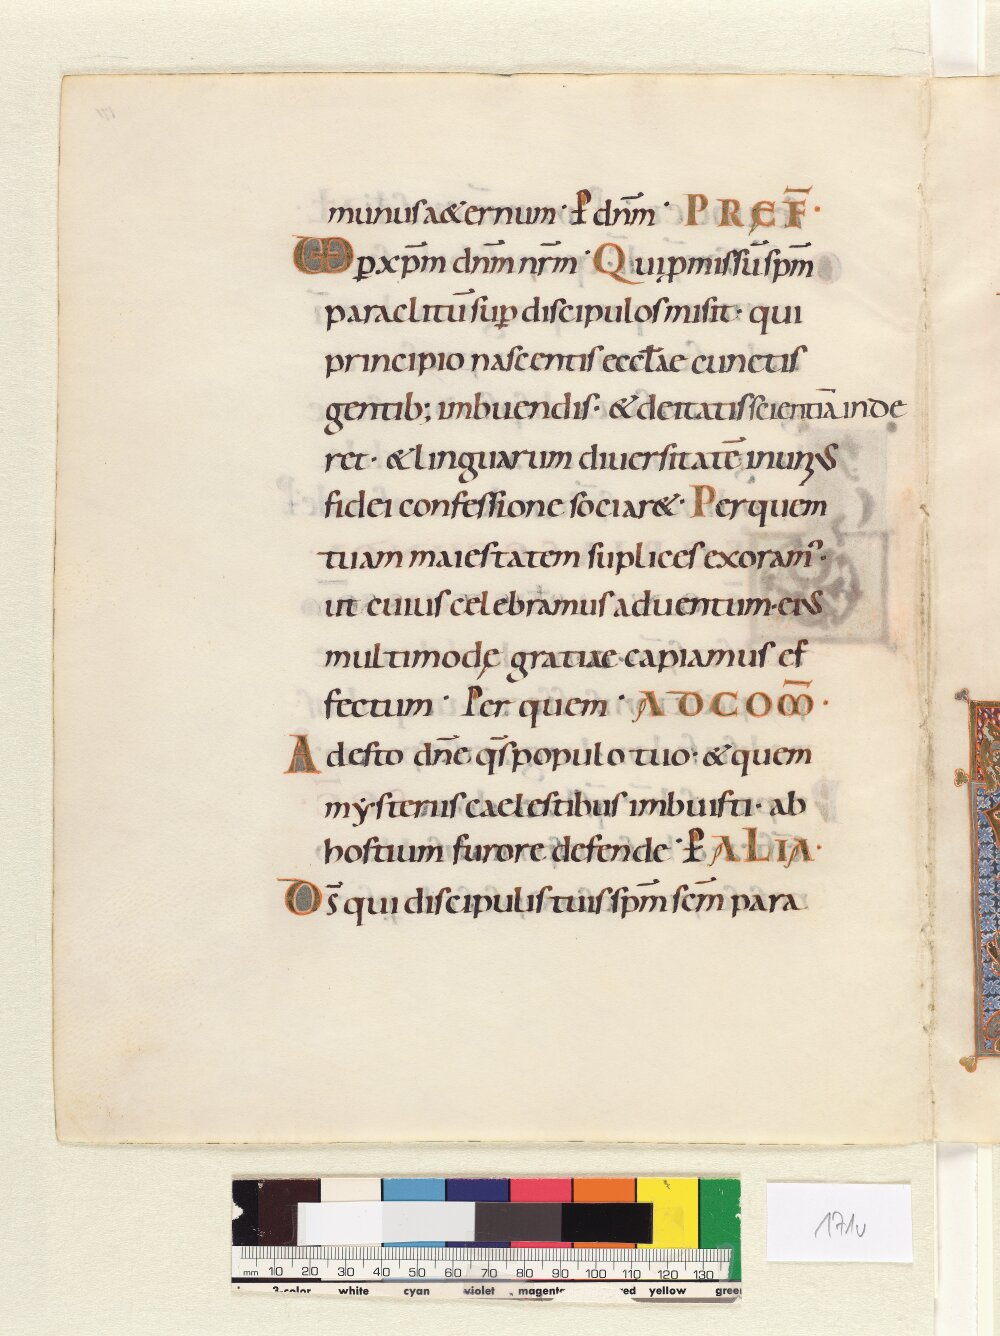 munus a&ernum · P̄ dn̄m · PREF̄ ·
UD p̱ xp̄m dn̄m nr̄m · Qui p̱missū sp̄m
paraclitū sup̱ discipulos misit · qui
principio nascentis eccl̄ae cunctis
gentib; imbuendis · & deitatis scientiā inde
ret · & linguarum diuersitatē in uni⁹
fidei confessione sociar& · Per quem
tuam maiestatem suplices exoram⁹ ·
ut cuius celebramus aduentum · eius
multimodę gratiae capiamus ef
fectum · Per quem · AD COM̄ ·
Adesto dn̄e q̄s populo tuo · & quem
mẏsteriis caelestibus imbuisti · ab
hostium furore defende · P̄ ALIA ·
Ds̄ qui discipulis tuis sp̄m scm̄ para
171v
mm 10 20 30 40 50 60 70 80 90 100 110 120 130
3-color white cyan violet magenta red yellow green